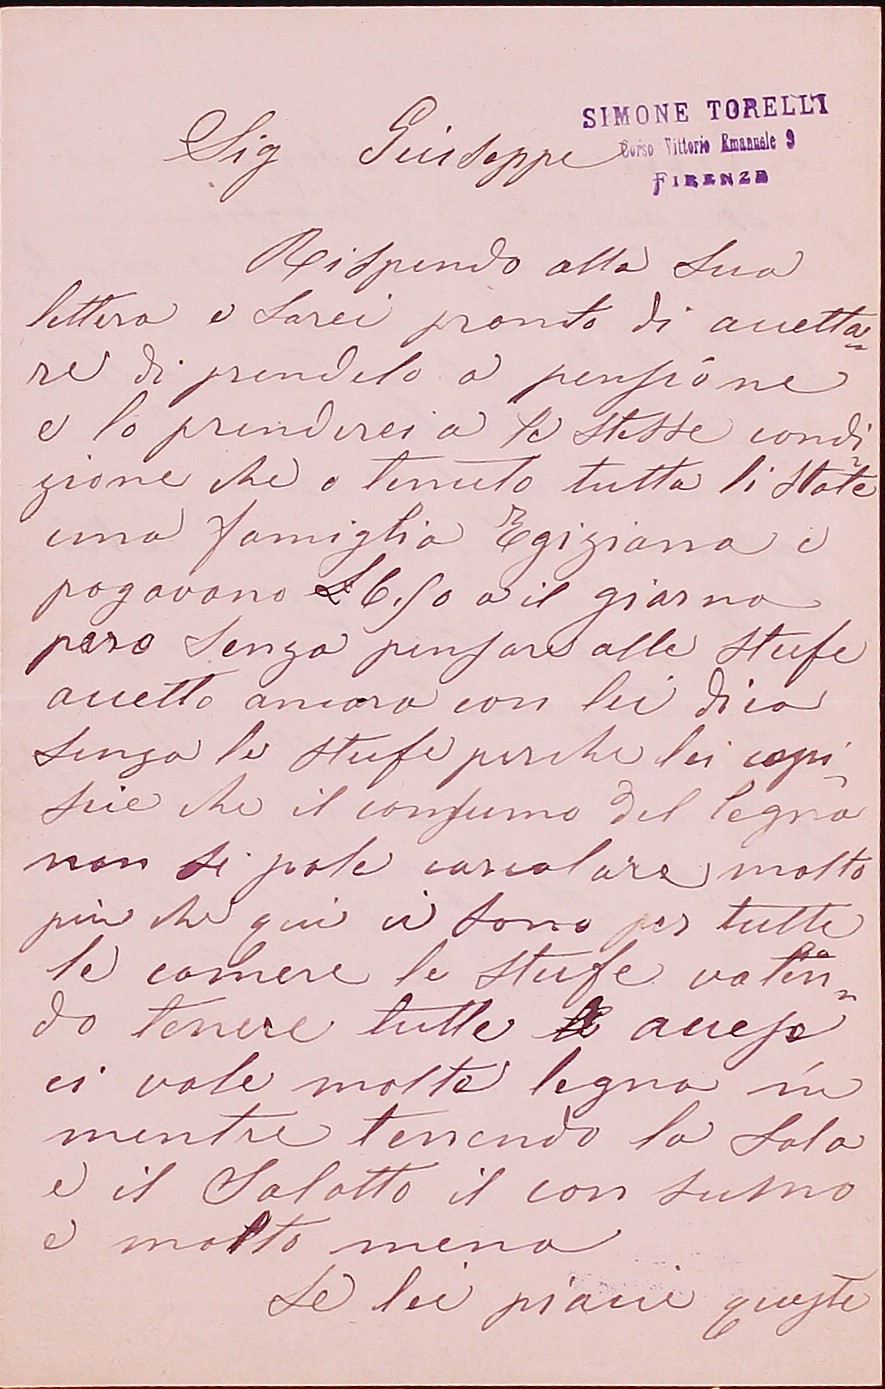 SIMONE TORELLI
Corso Vittorio Emanuele 9
FIRENZE
Sig Giuseppe
Rispondo alla sua
lettera e sarei pronto di accetta=
re di prendelo a pensione
e lo prenderei a le stesse condi=
zione che o tenuto tutta li state
una famiglia Egiziana e
pagavano £6.50 a il giorno
pero senza pensare alle stufe
accetto ancora con lei dico
senza le stufe perche lei capi-
scie che il consumo del legna
non si pole carcolare molto
piu che qui ci sono per tutte
le camere le stufe volen=
do tenere tutte accese
ci vole molta legna in
mentre tenendo la sala
e il Salotto il con sumo
e molto meno
Se lei piacie queste